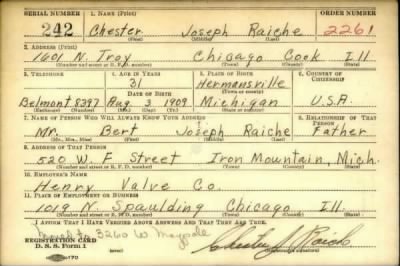 SERIAL NUMBER 1. NAME (Print) ORDER NUMBER
242 Chester Joseph Raiche 2261
(First) (Middle) (Last)
2. ADDRESS (Print)
1601 N. Troy Chicago Cook Ill
(Number and street or R. F. D. number) (Town) (County) (State)
3. TELEPHONE 4. AGE IN YEARS 5. PLACE OF BIRTH 6. COUNTRY OF CITIZENSHIP
31 Hermansville
DATE OF BIRTH
Belmont 8397 Aug. 3 1909 Michigan U.S.A.
7. NAME OF PERSON WHO WILL ALWAYS KNOW YOUR ADDRESS 8. RELATIONSHIP OF THAT PERSON
Mr. Bert Joseph Raiche Father
(Mr., Mrs., Miss) (First) (Middle) (Last)
9. ADDRESS OF THAT PERSON
520 W. F Street Iron Mountain, Mich.
(Number and street or R. F. D. number) (Town) (County) (State)
10. EMPLOYER'S NAME
Henry Valve Co.
11. PLACE OF EMPLOYMENT OR BUSINESS
1019 N. Spaulding Chicago Ill.
(Number and street or R. F. D. number) (Town) (County) (State)
I AFFIRM THAT I HAVE VERIFIED ABOVE ANSWERS AND THAT THEY ARE TRUE.
Moved to 3260 W.
REGISTRATION CARD
D. S. S. Form 1
Chester J. Raiche